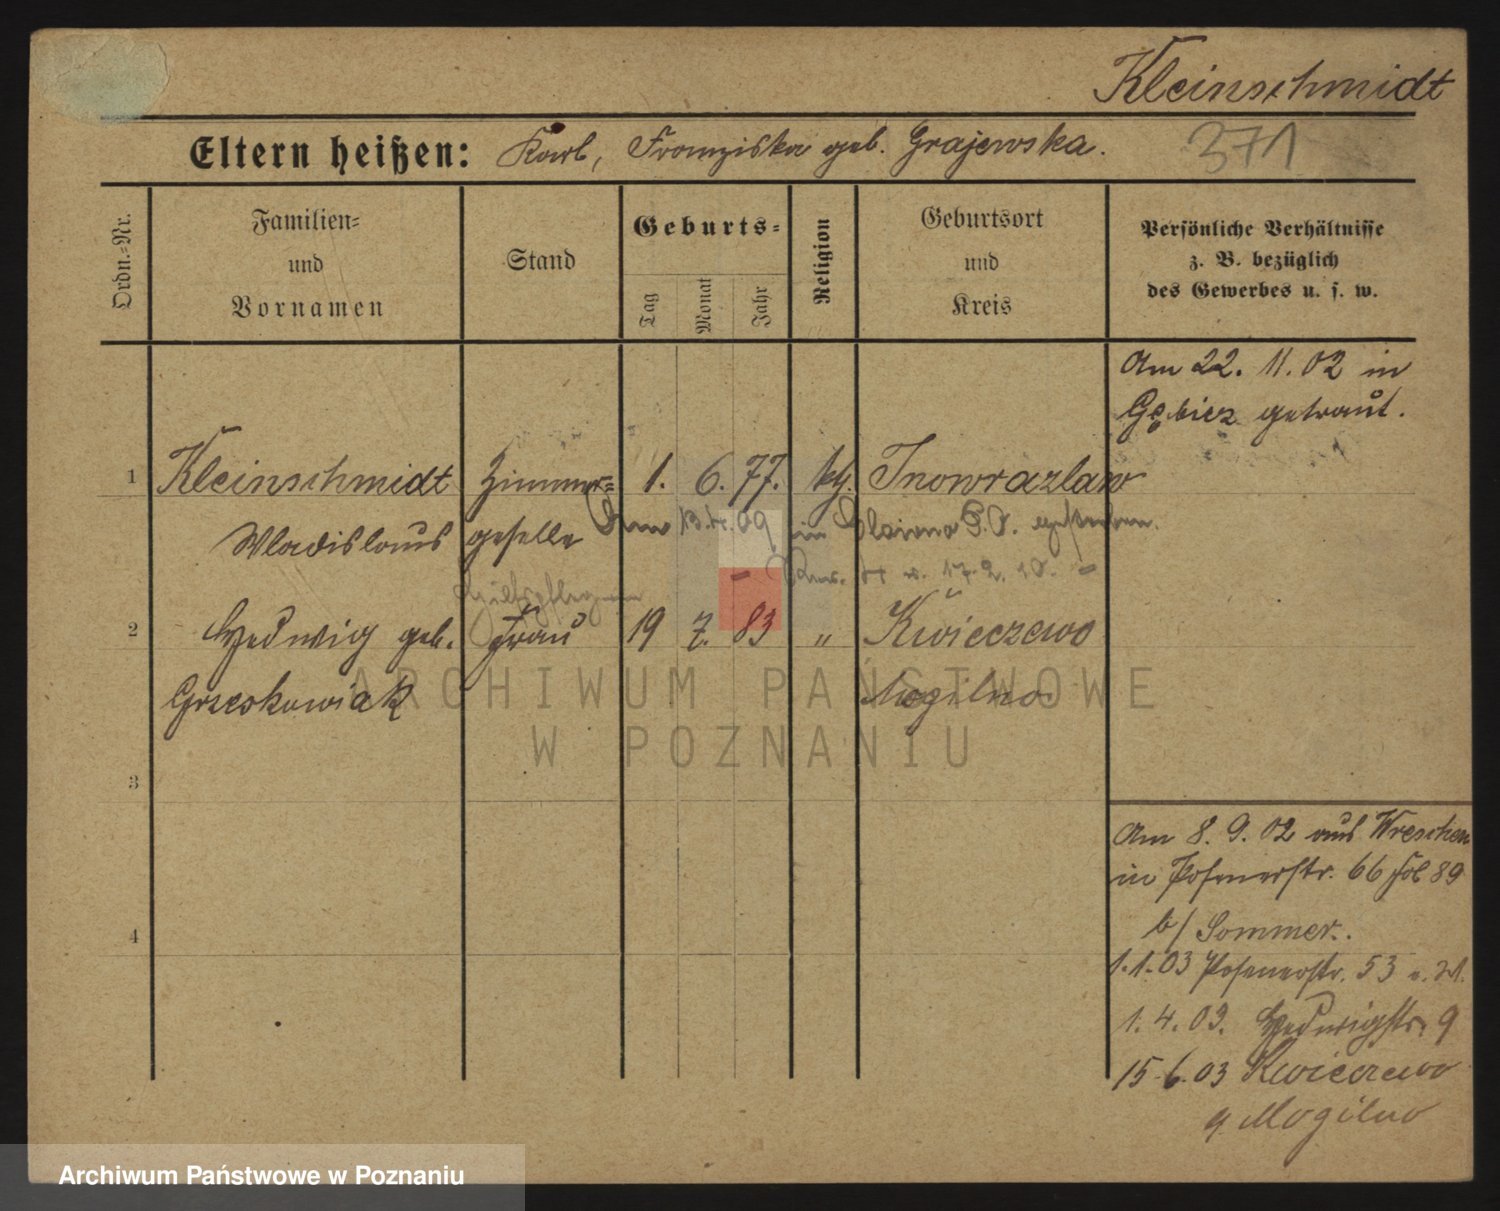 Kleinschmidt
Eltern heißen: Karl, Franziska geb. Grajewska.
371
Ordn.-Nr.
Familien-
und
Vornamen
Stand
Geburts-
Tag
Monat
Jahr
Religion
Geburtsort
und
Kreis
Persönliche Verhältnisse
z. B. bezüglich
des Gewerbes u. s. w.
Am 22. 11. 02 in
Gębicz getraut.
1 Kleinschmidt Zimmer= 1. 6. 77. kth. Inowrazlaw
Wladislaus geselle
13. 09 in P.O. gestorben.
17. 2. 10. –
2 Hedwig geb. Frau 19 7. 83 „ Kwieczewo
Grzeskowiak Mogilno
ARCHIWUM PAŃSTWOWE
W POZNANIU
3
4
Am 8. 9. 02 aus Wreschen
in Posenerstr. 66 fol 89
b/ Sommer.
1.1.03 Posenerstr. 53
1. 4. 03. Hedwigstr. 9
15.6.03 Kwieczewo
Mogilno
Archiwum Państwowe w Poznaniu